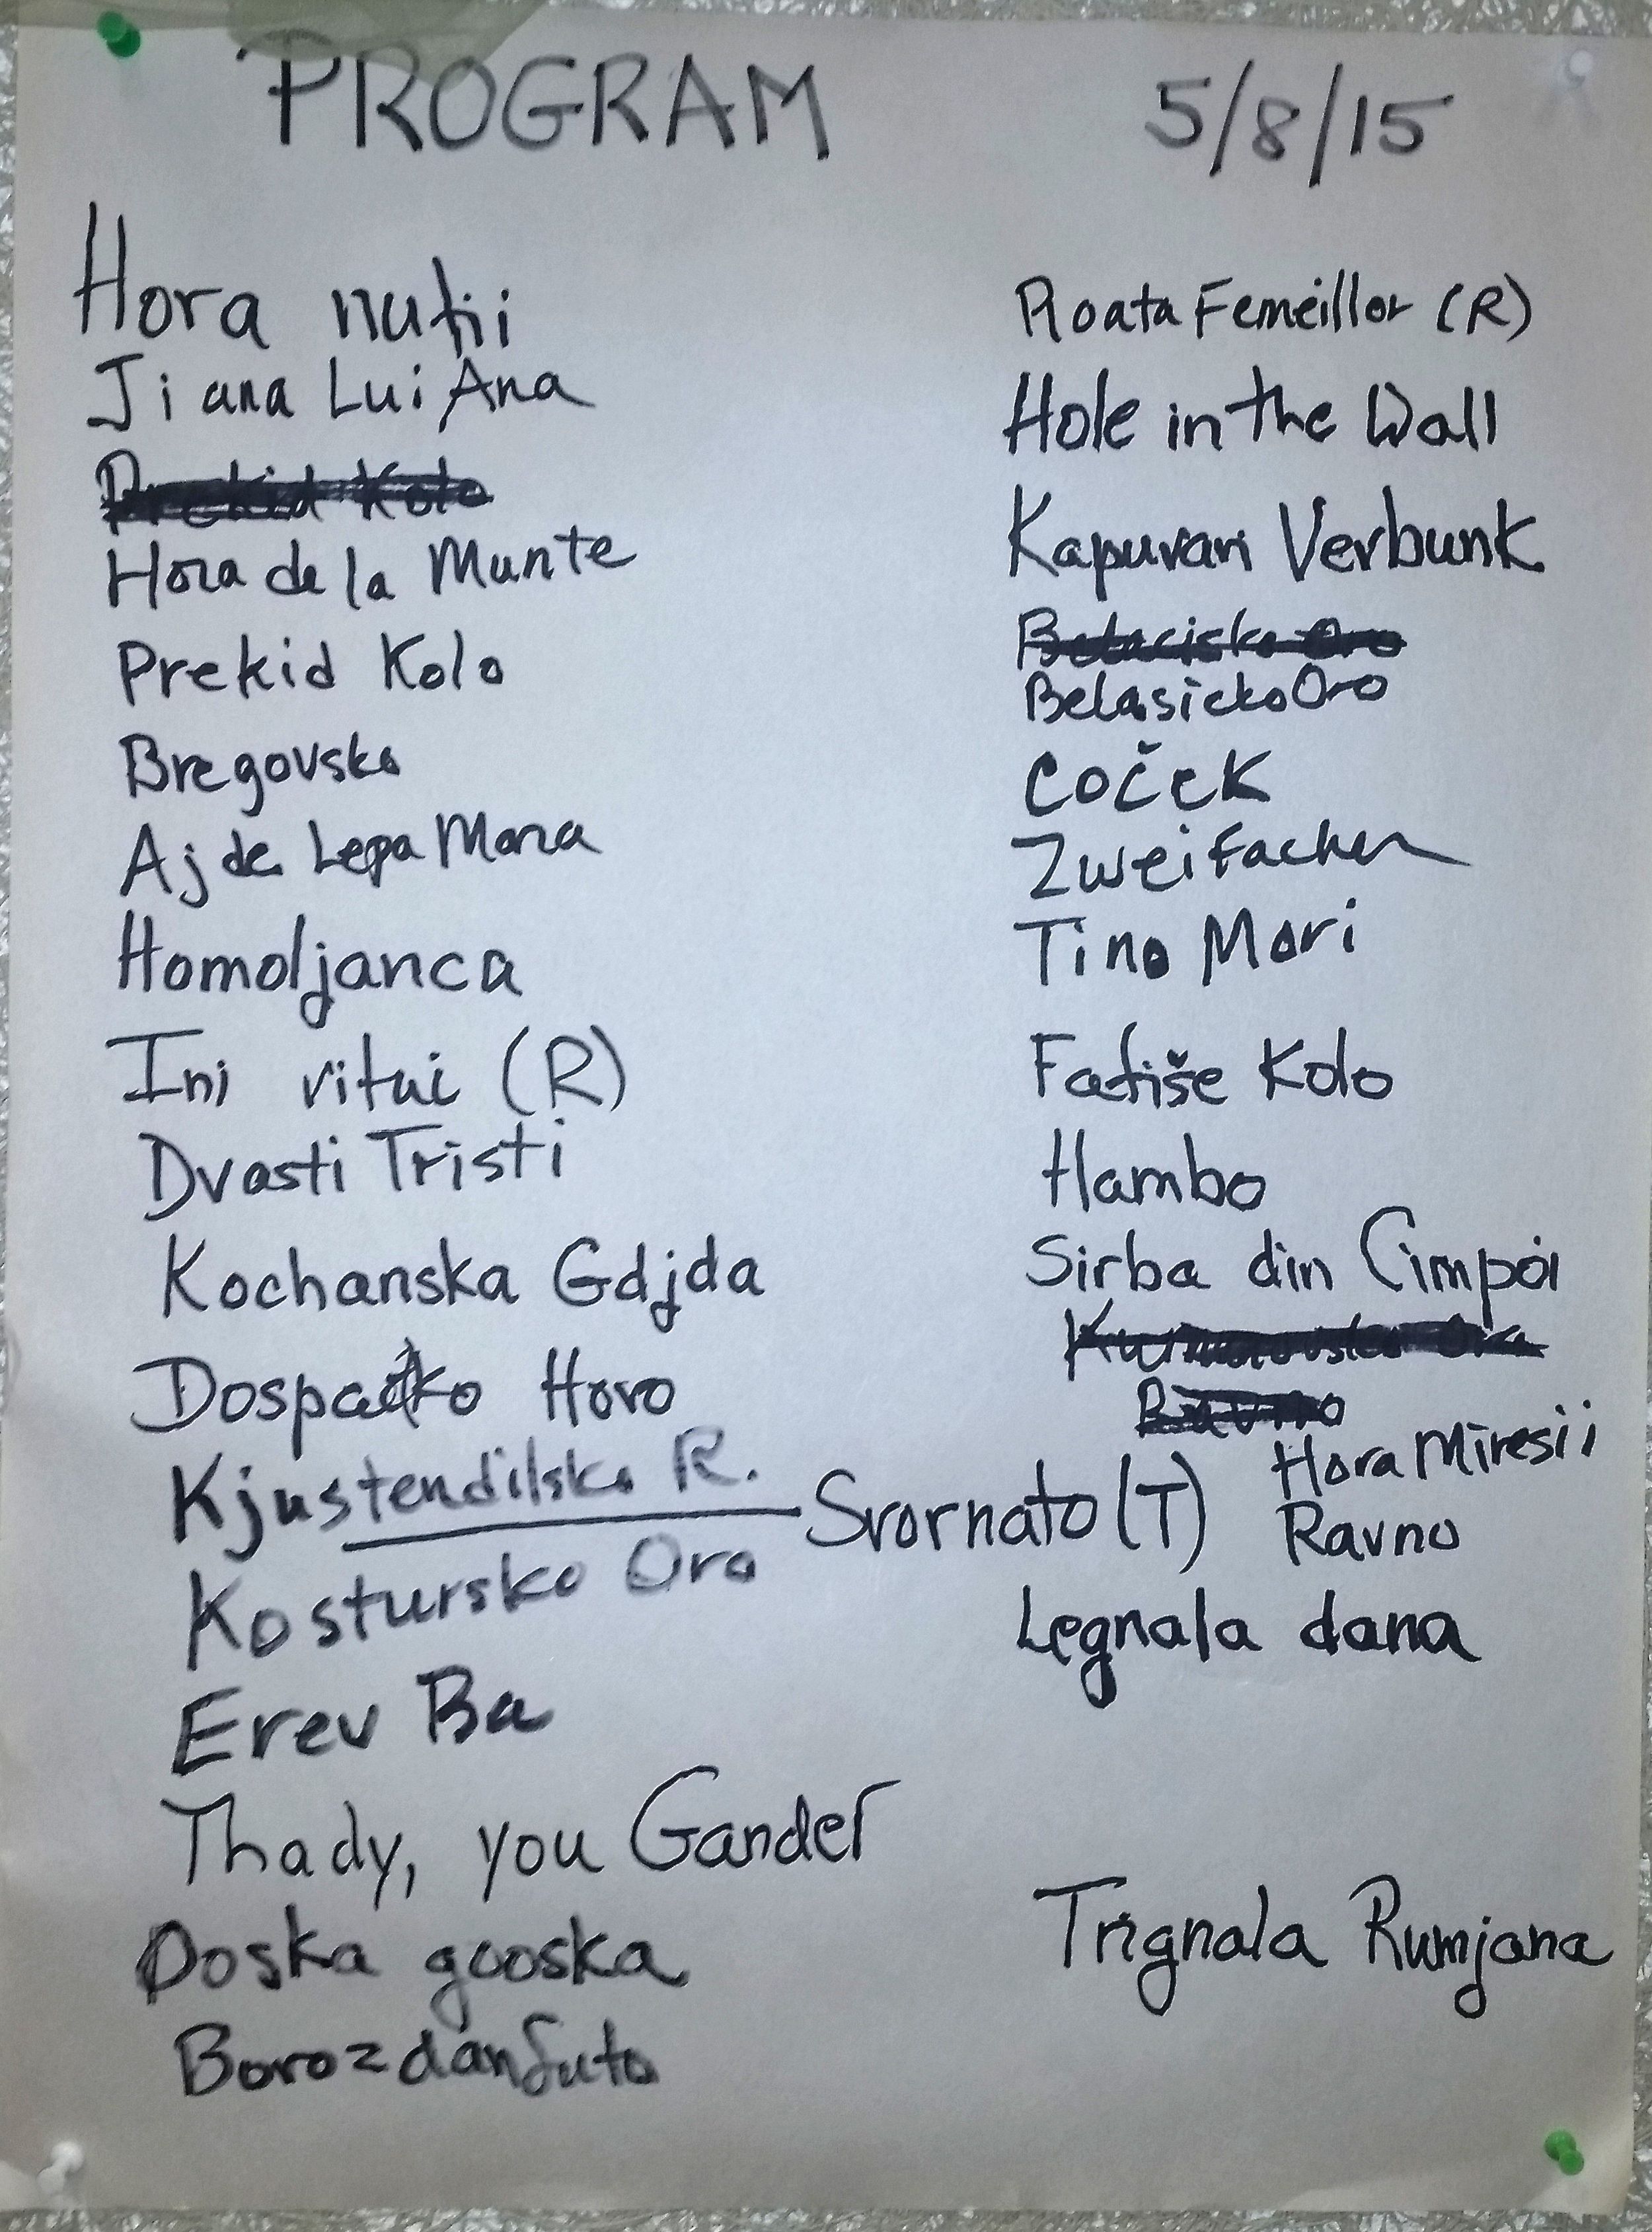 PROGRAM 5/8/15
Hora nuții
Jiana Lui Ana
Prekid Kolo
Hora de la Munte
Prekid Kolo
Bregovsko
Ajde Lepa Mara
Homoljanca
Ini vitui (R)
Dvasti Tristi
Kochanska Gdjda
Dospatko Horo
Kjustendilska R.
Svornato (T)
Kostursko Oro
Erev Ba
Thady, you Gander
Doska gooska
Borozdanfuto
Roata Femeillor (R)
Hole in the Wall
Kapuvari Verbunk
Belacisko Oro
Belasicko Oro
Coček
Zweifacher
Tino Mori
Fatiše Kolo
Hambo
Sirba din Cimpoi
Ravno
Hora Miresii
Ravno
Legnala dana
Trignala Rumjana